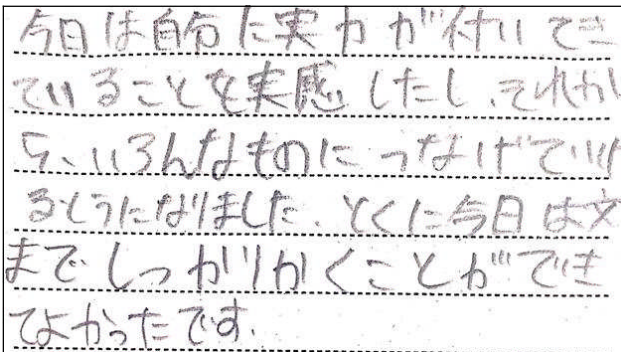 今日は自分に実力が付いてき
ていることを実感したし、それか
ら、いろんなものにつなげていけ
るようになりました。とくに今日は文
までしっかりかくことができ
てよかったです。